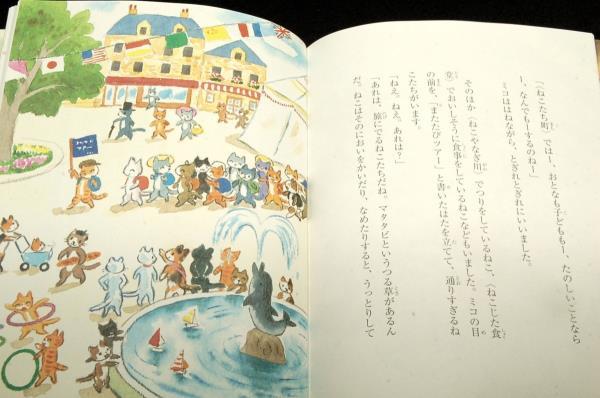 「〈ねこたち町〉では、おとなも子どもも―、たのしいことなら
―、なんでも―するのね―」
ミコははねながら、とぎれとぎれにいいました。
そのほか〈ねこやなぎ川〉でつりをしているねこ、〈ねこじた食
堂〉でおいしそうに食事をしているねこなどもいました。ミコの目
の前を、「またたびツアー」と書いたはたを立てて、通りすぎるね
こたちがいます。
「ねえ、ねえ、あれは？」
「あれは、旅にでるねこたちだね。マタタビというつる草があるん
だ。ねこはそのにおいをかいだり、なめたりすると、うっとりして